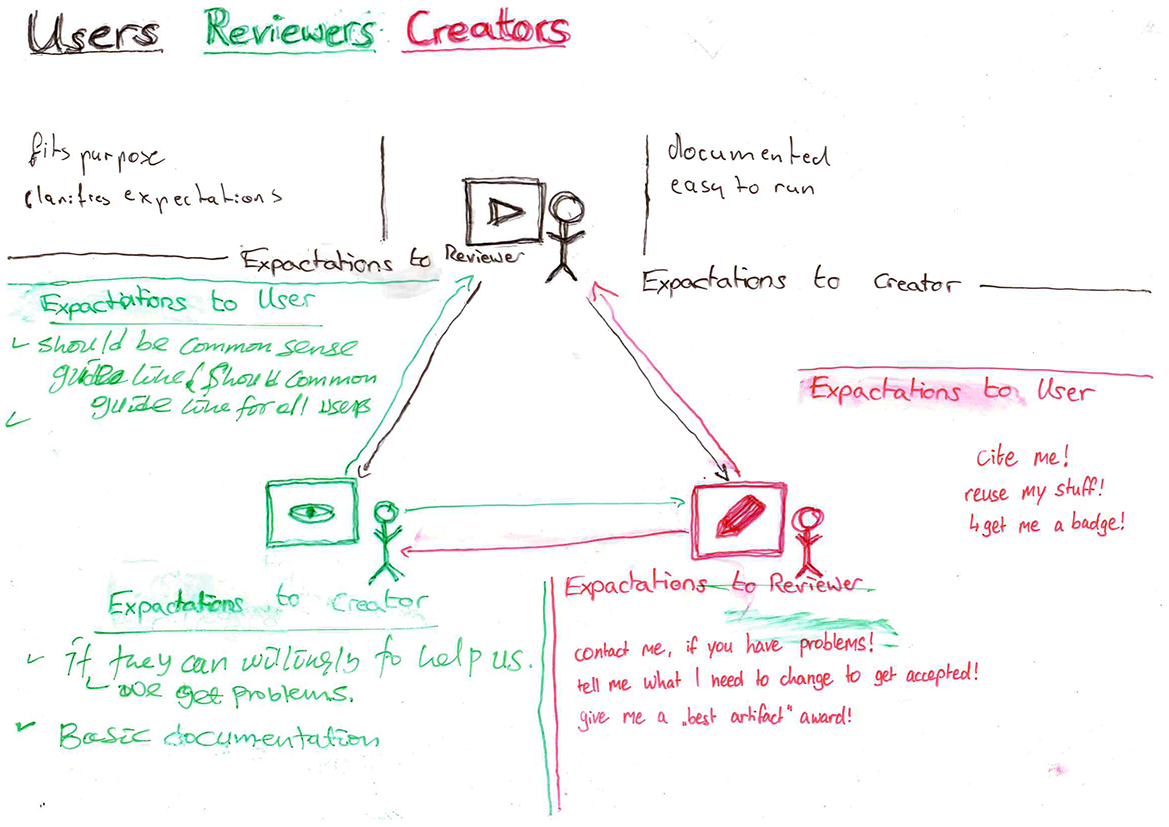 Users Reviewers Creators
fits purpose
clarifies expectations
Expactations to Reviewer
documented
easy to run
Expactations to Creator
Expactations to User
should be common sense
guide line & should common
guide line for all users
Expactations to User
cite me!
reuse my stuff!
↳ get me a badge!
Expactations to Creator
if they can willingly to help us.
↳ we get problems.
Basic documentation
Expactations to Reviewer
contact me, if you have problems!
tell me what I need to change to get accepted!
give me a „best artifact" award!